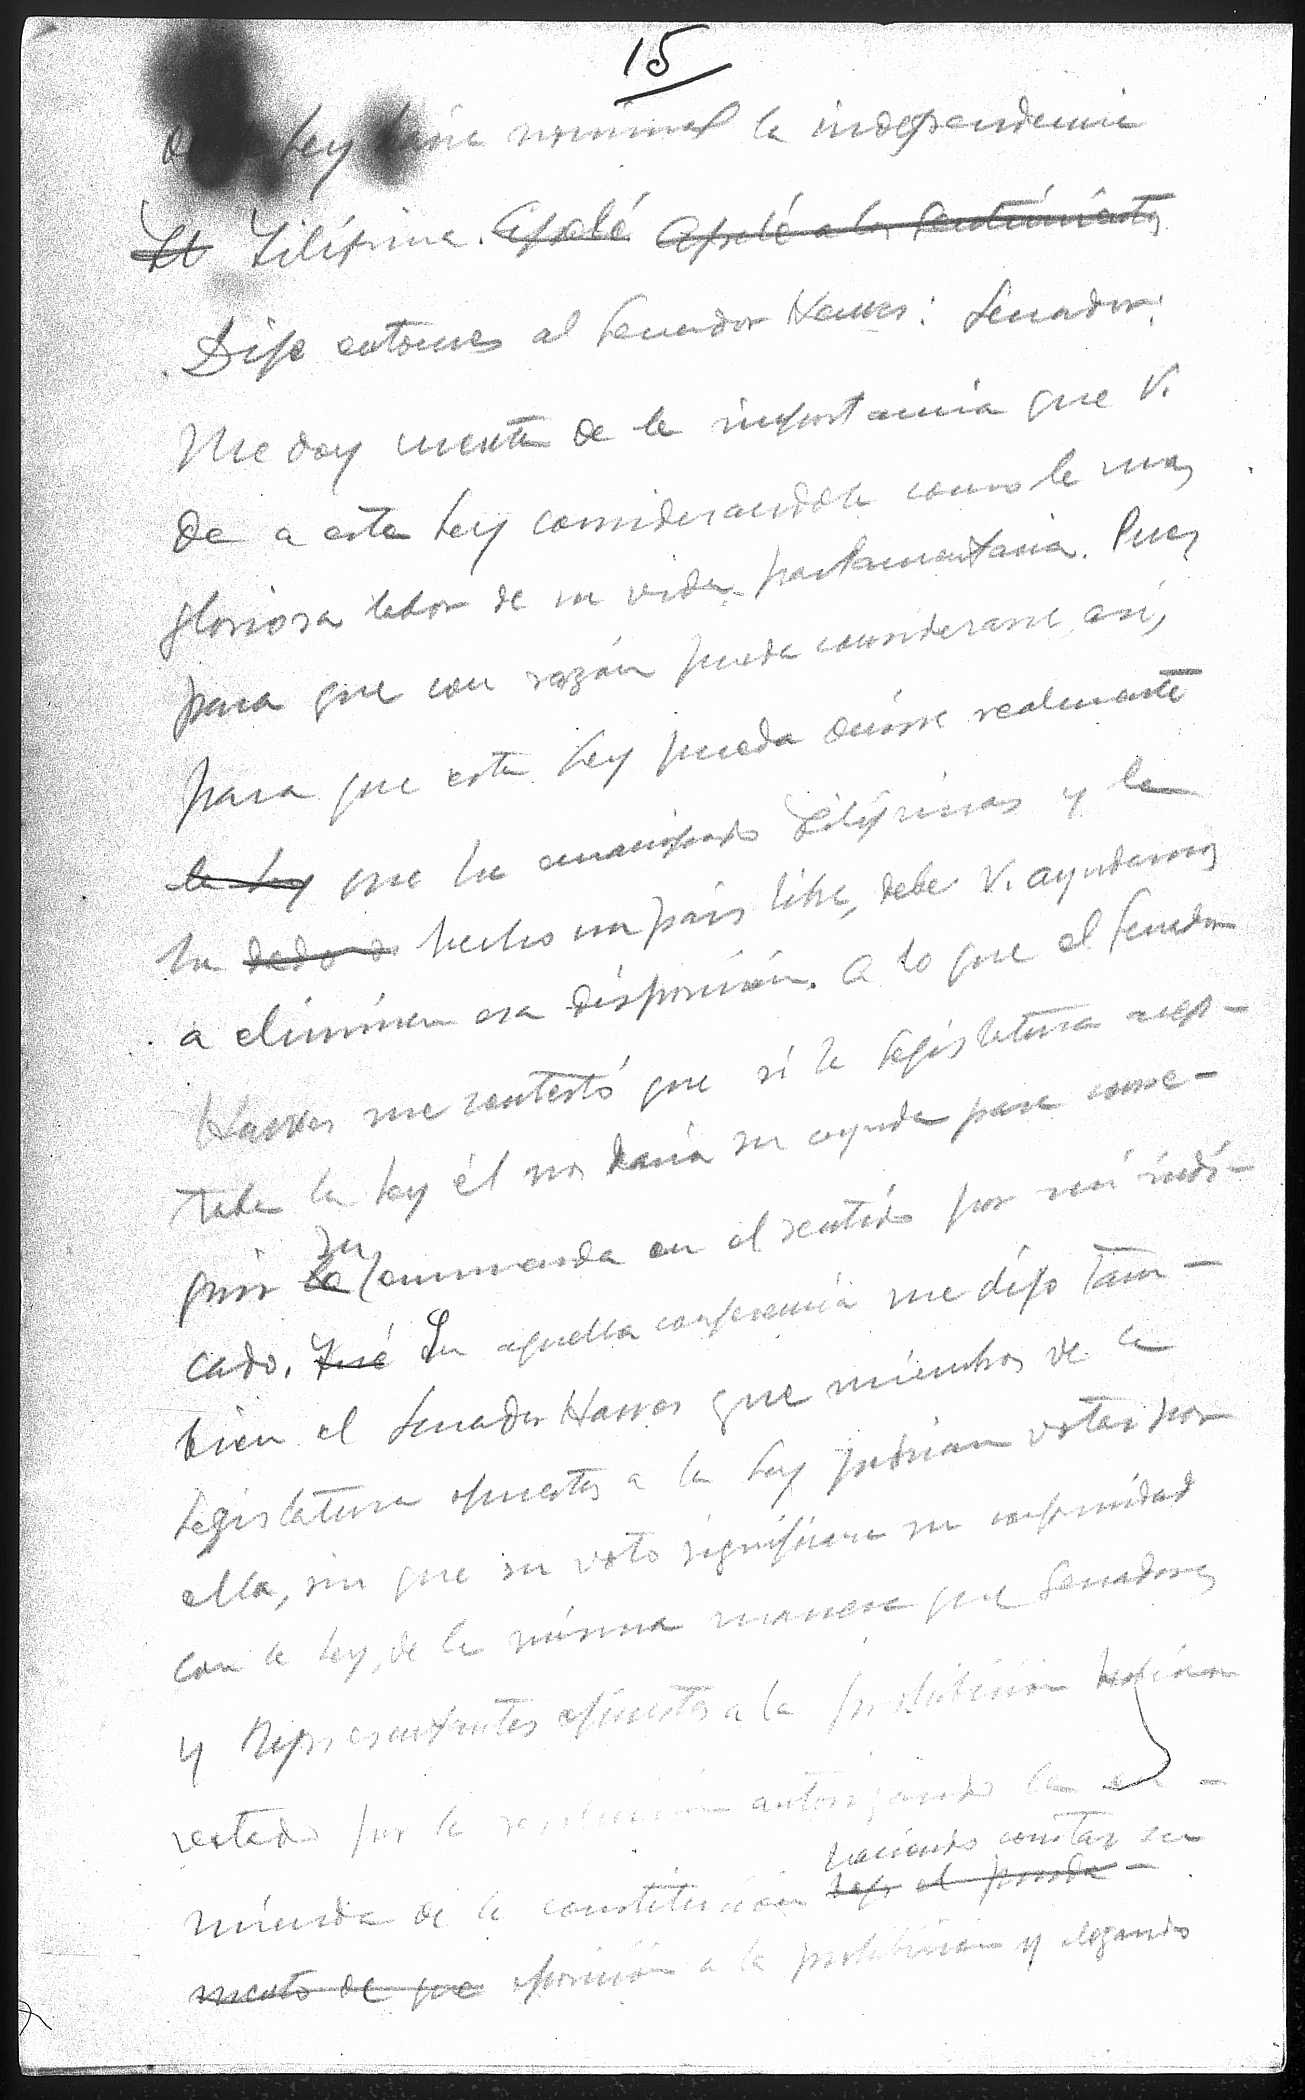 15
Ley haría nominal la independencia
Filipina. Apelé Apelé a los sentimientos
Dije entonces al Senador Hawes: Senador:
Me doy cuenta de la importancia que V.
da a esta Ley considerandola como la mas
gloriosa labor de su vida parlamentaria. Pues
para que con razón pueda considerarse así,
para que esta Ley pueda decirse realmente
la Ley que ha emancipado Filipinas y la
ha dado hecho un pais libre, debe V. ayudarnos
a eliminar esa disposición. A lo que el Senador
Hawes me contestó que si la Legislatura acep-
taba la Ley él nos daría su ayuda para conse-
su
guir la enmienda en el sentido por mí indi-
cado. Fué En aquella conferencia me dijo tam-
bien el Senador Hawes que miembros de la
Legislatura opuestos a la Ley podrian votar por
ella, sin que su voto significara su conformidad
con la Ley, de la misma manera que Senadores
y Representantes opuestos a la prohibición habían
votado por la resolución autorizando la en-
haciendo constar su
mienda de la constitución bajo el funda-
mento de que oposición a la prohibición y alegando